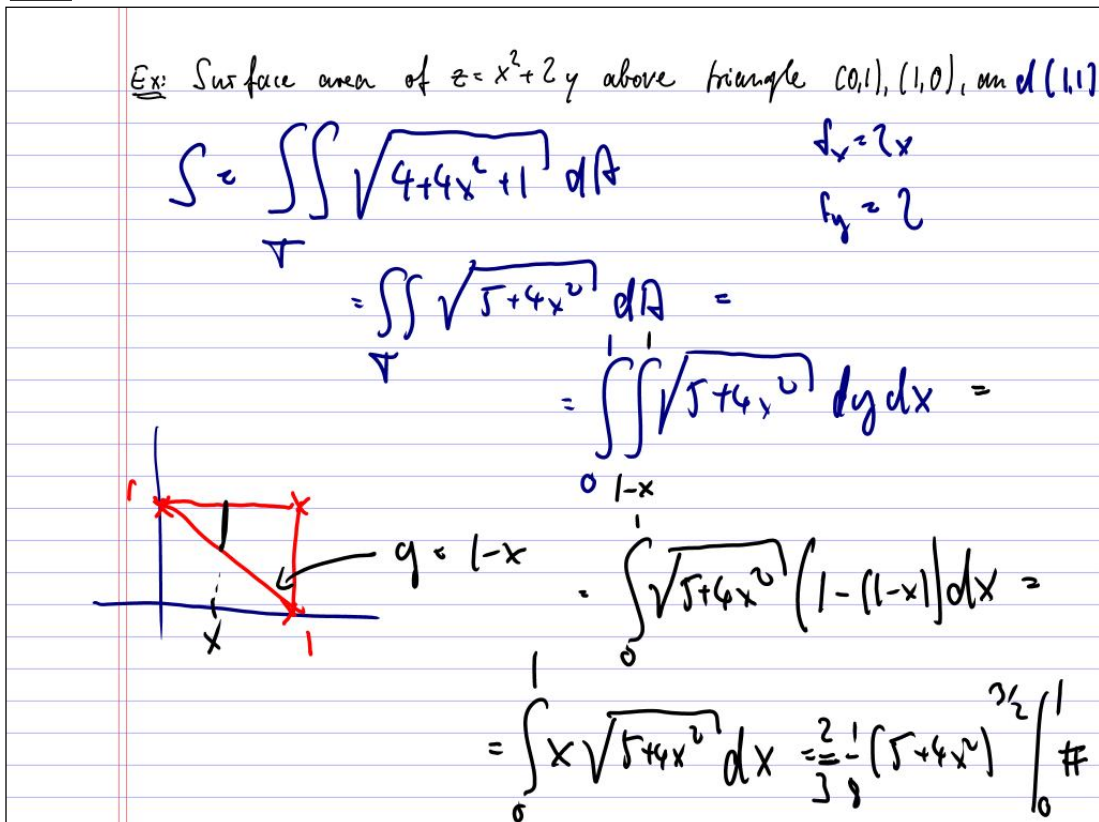 Ex: Surface area of z = x² + 2y above triangle (0,1), (1,0), and (1,1)
S = ∬_T √(4+4x²+1) dA
f_x = 2x
f_y = 2
= ∬_T √(5+4x²) dA =
= ∫_0^1 ∫_{1-x}^1 √(5+4x²) dy dx =
1
y = 1-x
x
1
= ∫_0^1 √(5+4x²) (1-(1-x)) dx =
= ∫_0^1 x √(5+4x²) dx = 2/3 · 1/8 (5+4x²)^{3/2} |_0^1 #